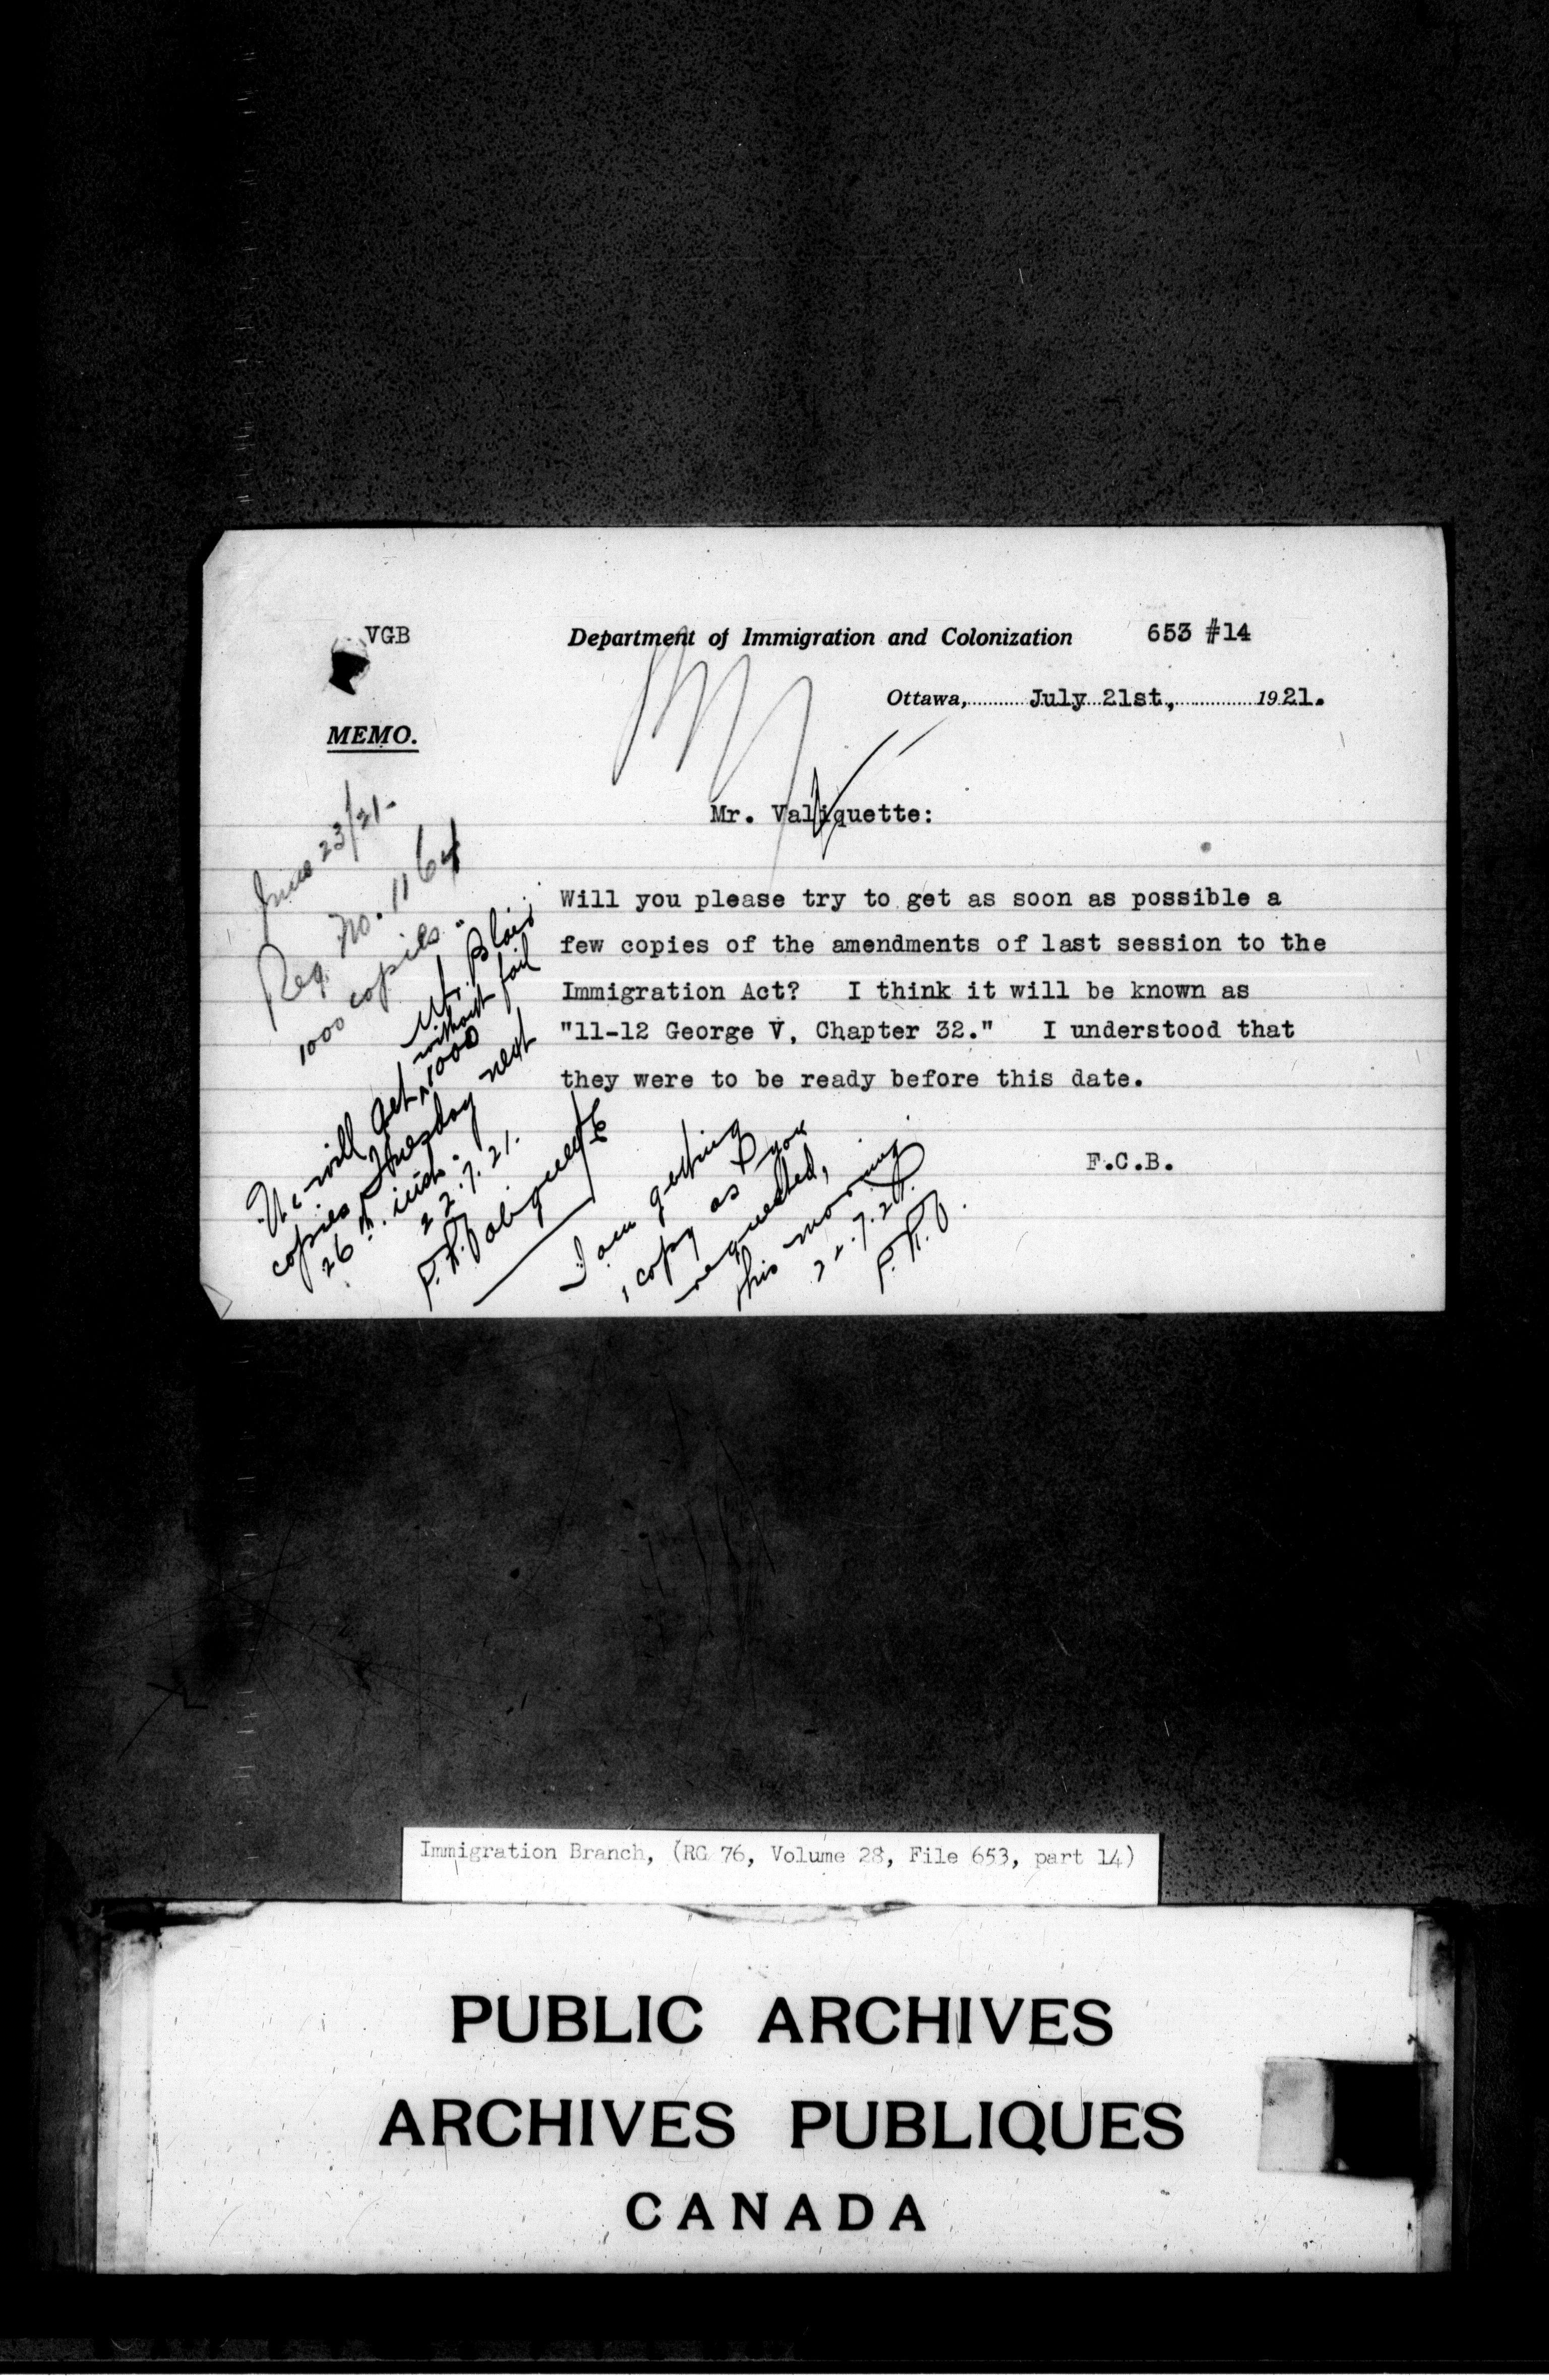 VGB
Department of Immigration and Colonization
653 #14
Ottawa, July 21st, 1921.
MEMO.
Mr. Valiquette:
Will you please try to get as soon as possible a
few copies of the amendments of last session to the
Immigration Act? I think it will be known as
"11-12 George V, Chapter 32." I understood that
they were to be ready before this date.
F.C.B.
June 23/21-
Req. No. 1164
1000 copies
Mr. Blair
We will get 1000
without fail
copies Tuesday next
26th inst.
22.7.21.
I am getting
1 copy as you
requested,
this morning
22.7.21.
Immigration Branch, (RG 76, Volume 28, File 653, part 14)
PUBLIC ARCHIVES
ARCHIVES PUBLIQUES
CANADA